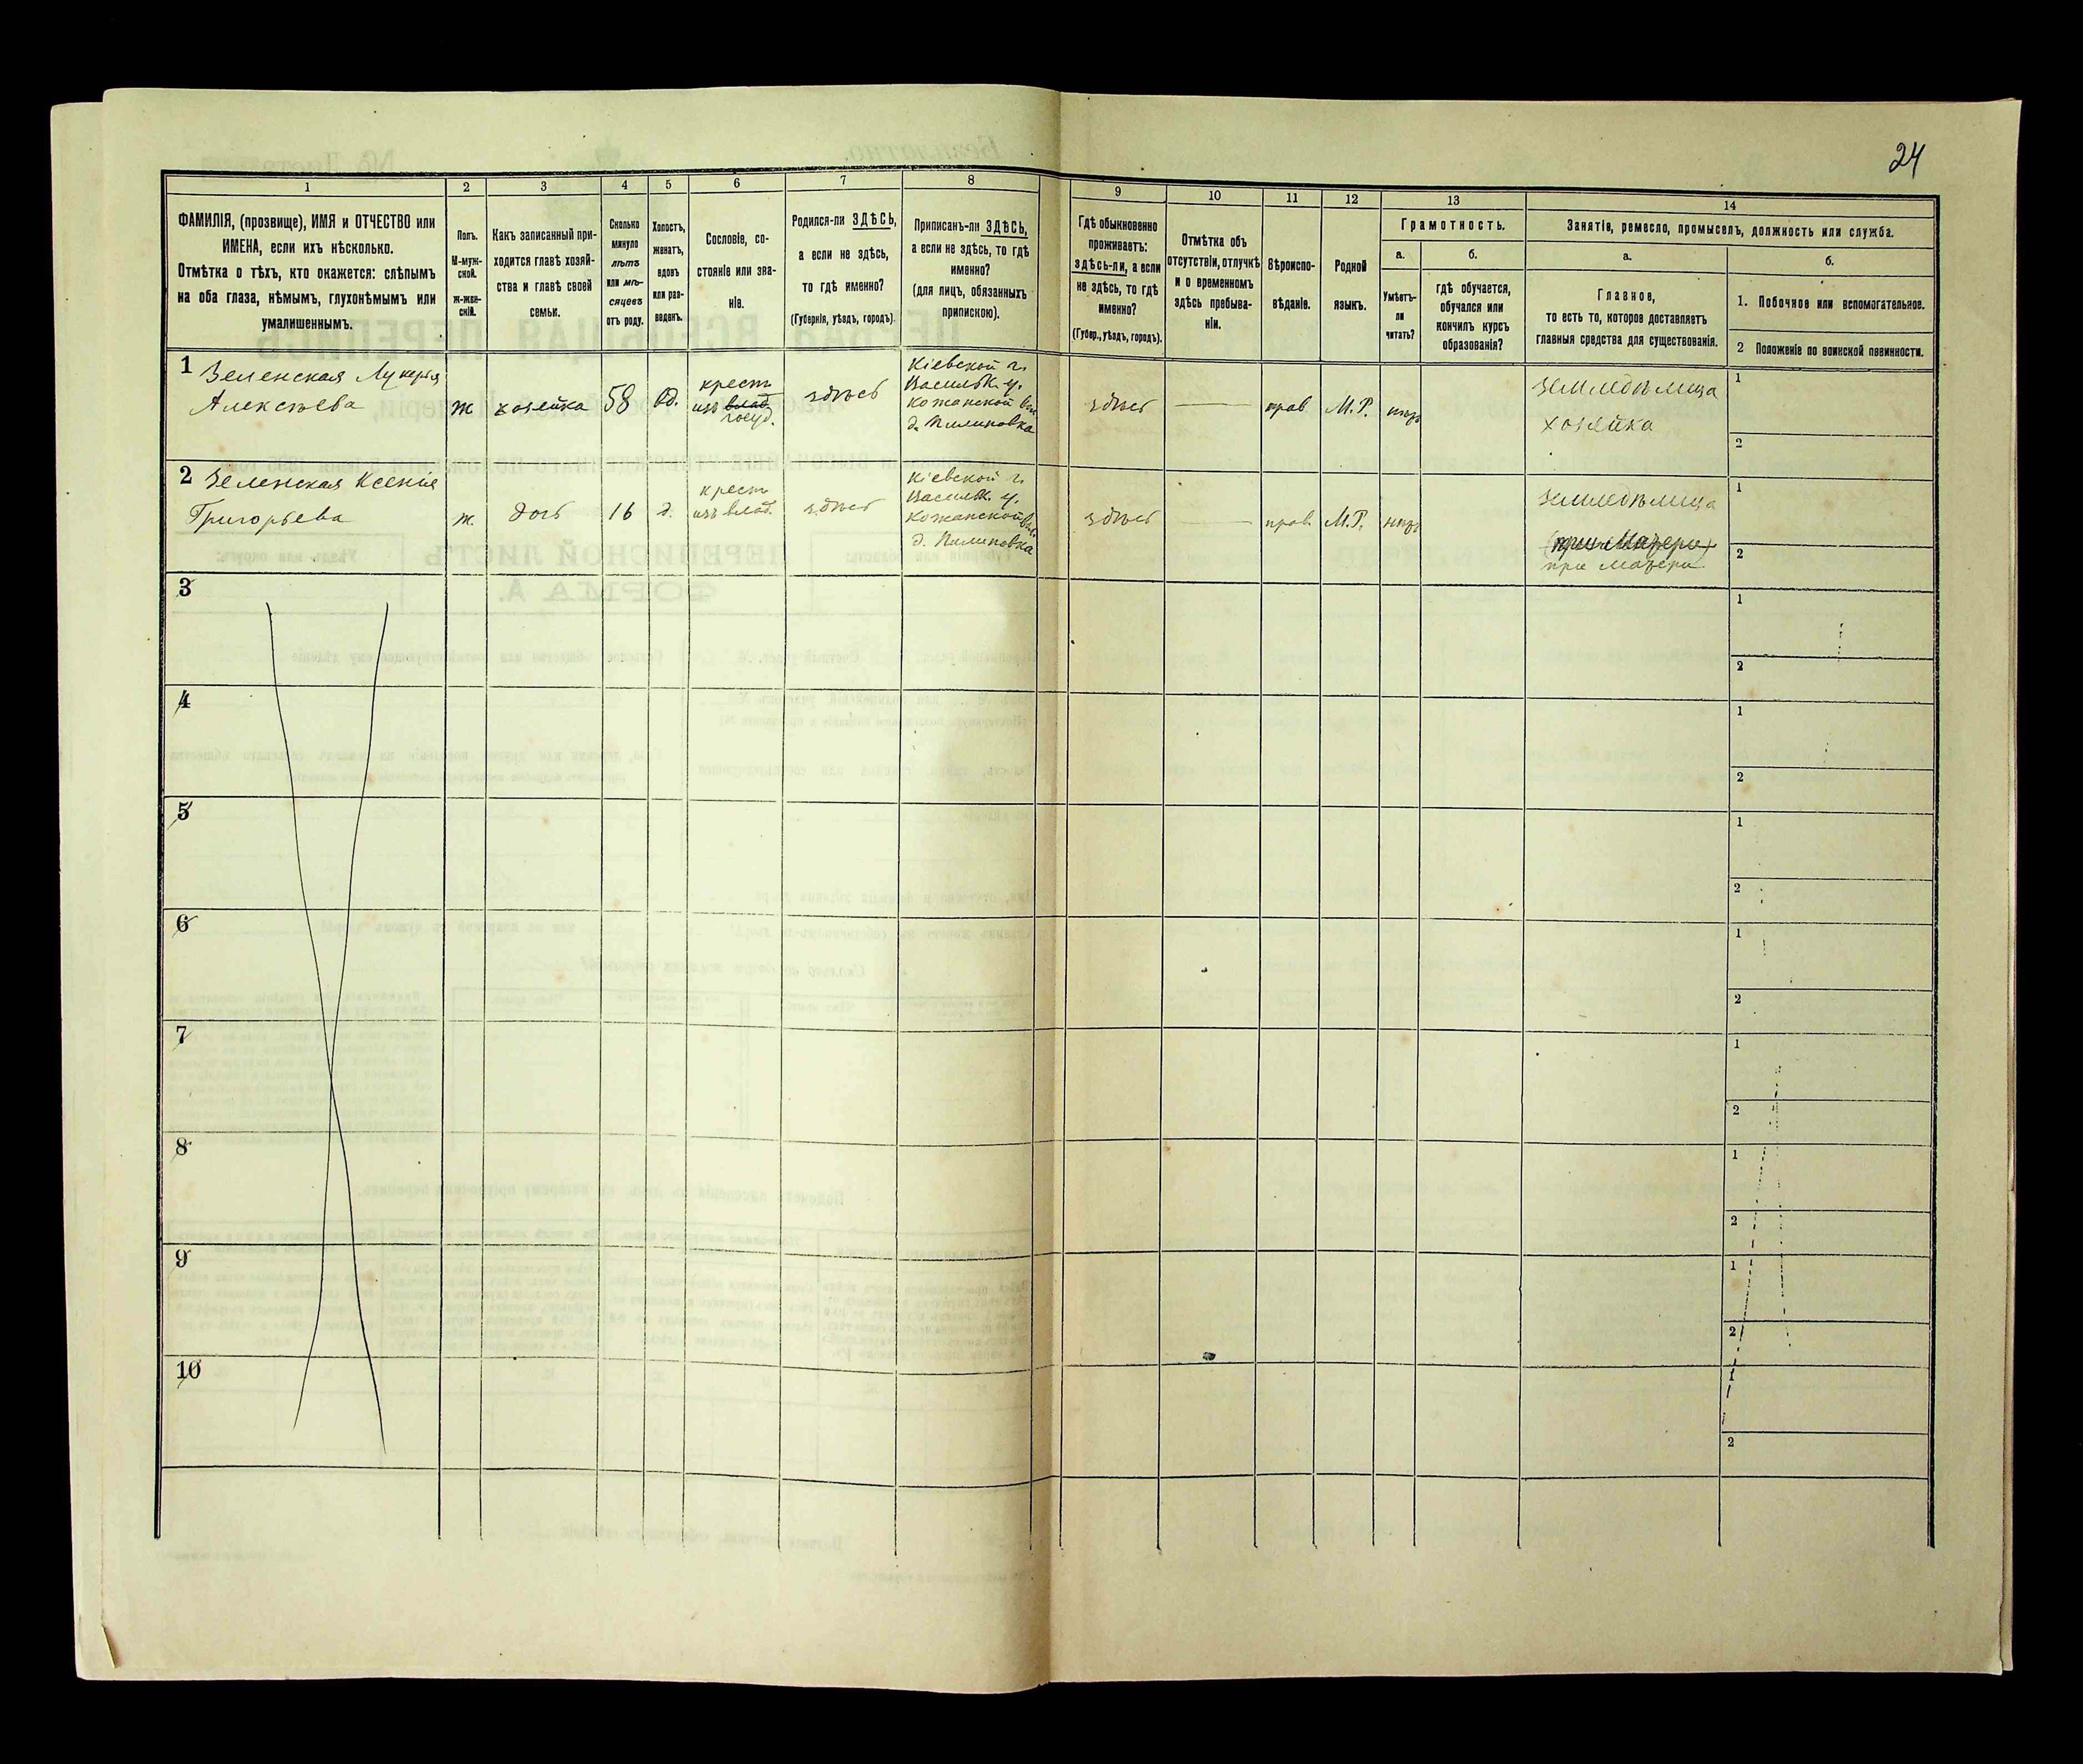 24
1
2
3
4
5
6
7
8
9
10
11
12
13
14
ФАМИЛІЯ, (прозвище), ИМЯ и ОТЧЕСТВО или
ИМЕНА, если ихъ нѣсколько.
Отмѣтка о тѣхъ, кто окажется: слѣпымъ
на оба глаза, нѣмымъ, глухонѣмымъ или
умалишеннымъ.
Полъ.
М-муж-
ской.
Ж-жен-
скій.
Какъ записанный при-
ходится главѣ хозяй-
ства и главѣ своей
семьи.
Сколько
минуло
лѣтъ
или мѣ-
сяцевъ
отъ роду.
Холостъ,
женатъ,
вдовъ
или раз-
веденъ.
Сословіе, со-
стояніе или зва-
ніе.
Родился-ли ЗДѢСЬ,
а если не здѣсь,
то гдѣ именно?
(Губернія, уѣздъ, городъ).
Приписанъ-ли ЗДѢСЬ,
а если не здѣсь, то гдѣ
именно?
(для лицъ, обязанныхъ
припискою).
Гдѣ обыкновенно
проживаетъ:
здѣсь-ли, а если
не здѣсь, то гдѣ
именно?
(Губер., уѣздъ, городъ).
Отмѣтка объ
отсутствіи, отлучкѣ
и о временномъ
здѣсь пребыва-
ніи.
Вѣроиспо-
вѣданіе.
Родной
языкъ.
Грамотность.
а.
Умѣетъ-
ли
читать?
б.
гдѣ обучается,
обучался или
кончилъ курсъ
образованія?
Занятіе, ремесло, промыселъ, должность или служба.
а.
Главное,
то есть то, которое доставляетъ
главныя средства для существованія.
б.
1. Побочное или вспомогательное.
2 Положеніе по воинской повинности.
1 Зеленская Лукерья
Алексѣева
ж
хозяйка
58
вд.
крест
изъ влад.
госуд.
здѣсь
Кіевской г.
Васильк. у.
Кожанской вол.
д. Пилиповка
здѣсь
прав
М.Р.
нѣтъ
земледѣлица
хозяйка
1
2
2 Зеленская Ксенія
Григорьева
ж.
дочь
16
д.
крест
изъ влад.
здѣсь
Кіевской г.
Васильк. у.
Кожанской вол.
д. Пилиповка
здѣсь
прав.
М.Р.
нѣтъ
земледѣлица
(при матери)
при матери
1
2
3
1
2
4
1
2
5
1
2
6
1
2
7
1
2
8
1
2
9
1
2
10
1
2